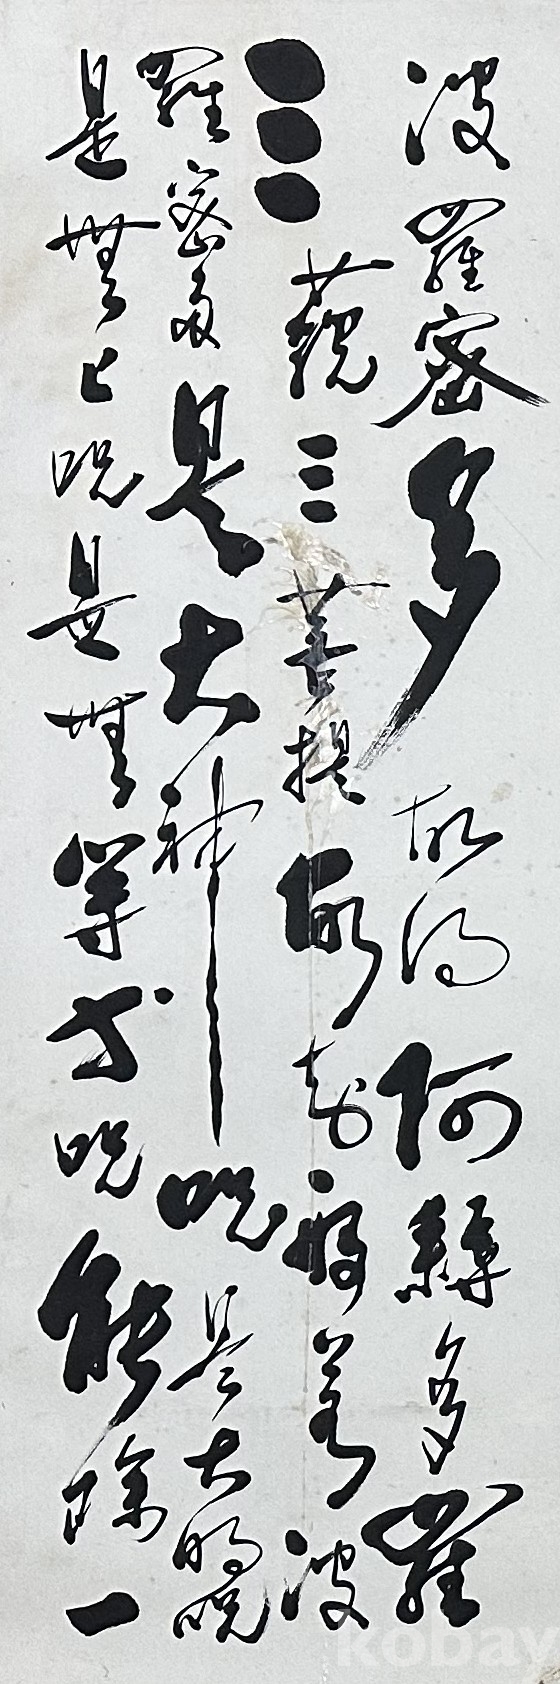 波羅密多故得阿耨多羅
三藐三菩提故知般若波
羅密多是大神呪是大明呪
是無上呪是無等等呪能除一
kobay